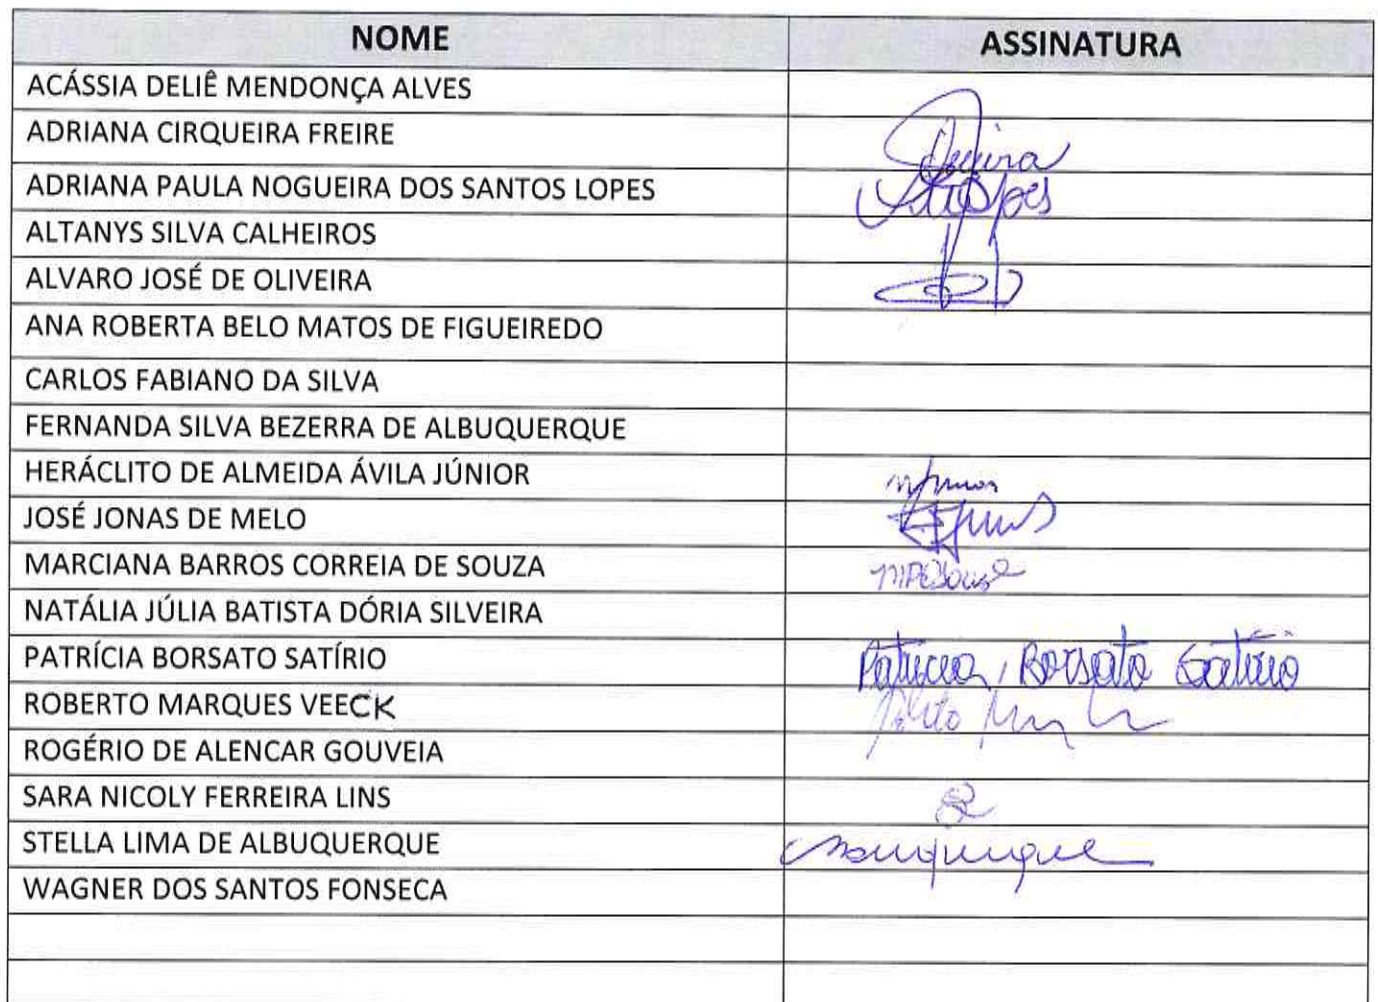 NOME ASSINATURA
ACÁSSIA DELIÊ MENDONÇA ALVES
ADRIANA CIRQUEIRA FREIRE
ADRIANA PAULA NOGUEIRA DOS SANTOS LOPES
ALTANYS SILVA CALHEIROS
ALVARO JOSÉ DE OLIVEIRA
ANA ROBERTA BELO MATOS DE FIGUEIREDO
CARLOS FABIANO DA SILVA
FERNANDA SILVA BEZERRA DE ALBUQUERQUE
HERÁCLITO DE ALMEIDA ÁVILA JÚNIOR
JOSÉ JONAS DE MELO
MARCIANA BARROS CORREIA DE SOUZA
NATÁLIA JÚLIA BATISTA DÓRIA SILVEIRA
PATRÍCIA BORSATO SATÍRIO Patrícia Borsato Satírio
ROBERTO MARQUES VEECK
ROGÉRIO DE ALENCAR GOUVEIA
SARA NICOLY FERREIRA LINS
STELLA LIMA DE ALBUQUERQUE
WAGNER DOS SANTOS FONSECA